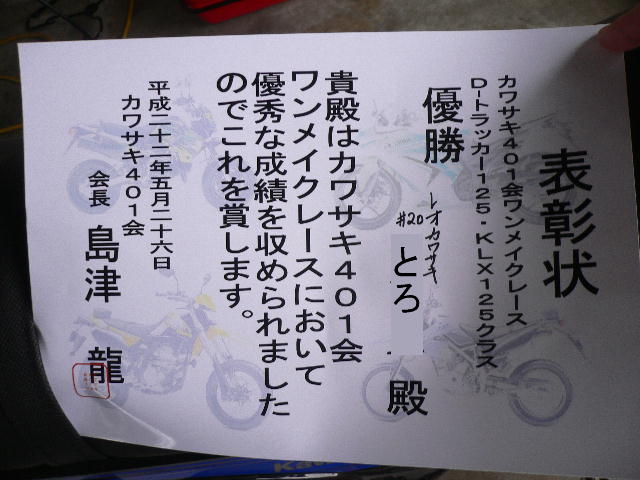 表彰状
カワサキ401会ワンメイクレース
D-トラッカー125・KLX125クラス
優勝
レオカワサキ
#20
とろ
殿
貴殿はカワサキ401会
ワンメイクレースにおいて
優秀な成績を収められました
のでこれを賞します。
平成二十二年五月二十六日
カワサキ401会
会長 島津 龍